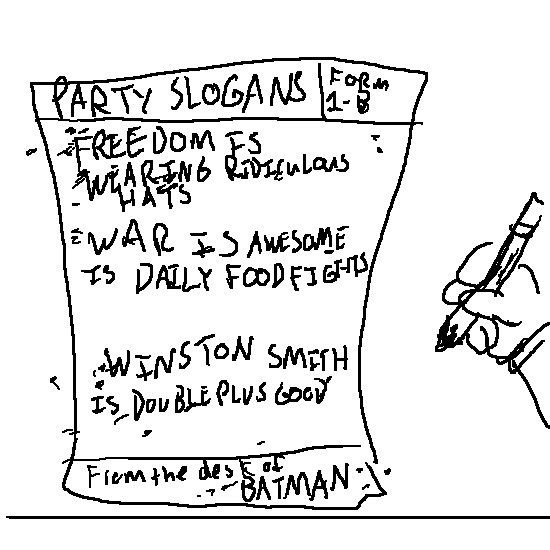 PARTY SLOGANS
FORM
1-B
FREEDOM IS
WEARING RIDICULOUS
HATS
WAR IS AWESOME
IS DAILY FOOD FIGHTS
WINSTON SMITH
IS DOUBLEPLUS GOOD
From the desk of
BATMAN